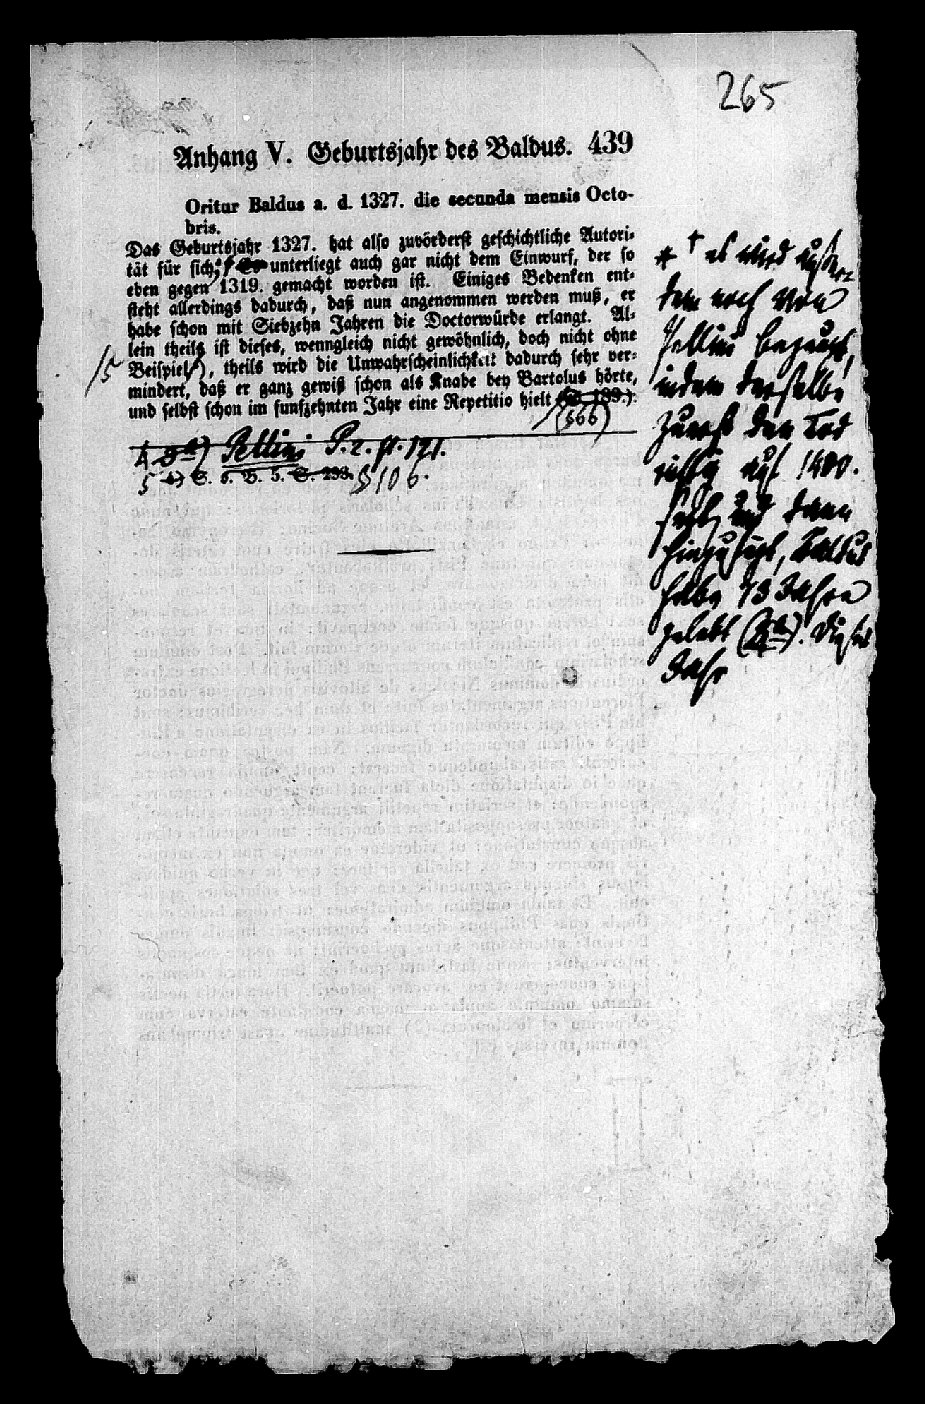 265
Anhang V. Geburtsjahr des Baldus. 439
Oritur Baldus a. d. 1327. die secunda mensis Octo-
bris.
Das Geburtsjahr 1327. hat also zuvörderst geschichtliche Autori-
tät für sich; † Er unterliegt auch gar nicht dem Einwurf, der so
eben gegen 1319. gemacht worden ist. Einiges Bedenken ent-
steht allerdings dadurch, daß nun angenommen werden muß, er
habe schon mit Siebzehn Jahren die Doctorwürde erlangt. Al-
lein theils ist dieses, wenngleich nicht gewöhnlich, doch nicht ohne
Beispiel), theils wird die Unwahrscheinlichkeit dadurch sehr ver-
mindert, daß er ganz gewiß schon als Knabe bey Bartolus hörte,
und selbst schon im funfzehnten Jahr eine Repetitio hielt (S. 189.).
/5
(§66)
4 Pellini P. 2. p. 121.
5 4) S. o. B. 3. S. 293. § 106.
* † es wird außer-
dem noch von
Pellini bezeugt,
indem derselbe
zuerst den Tod
richtig auf 1400.
setzt und dann
hinzufügt, Baldus
habe 73 Jahre
gelebt (4). Dieses
Jahr